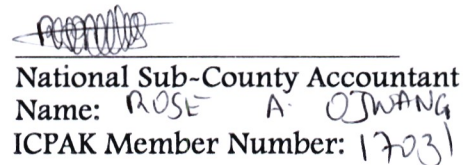 National Sub-County Accountant
Name: ROSE A. OJWANG
ICPAK Member Number: 17031